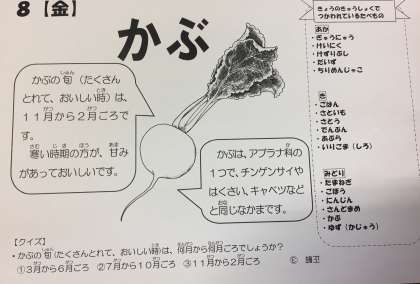 8【金】
かぶ
かぶの旬(たくさん
とれて、おいしい時)は、
11月から2月ごろで
す。
寒い時期の方が、甘み
があっておいしいです。
かぶは、アブラナ科の
1つで、チンゲンサイや
はくさい、キャベツなど
と同じなかまです。
きょうのきゅうしょくで
つかわれているたべもの
あか
・ぎゅうにゅう
・けいにく
・けずりぶし
・だいず
・ちりめんじゃこ
き
・ごはん
・さといも
・さとう
・でんぷん
・あぶら
・いりごま(しろ)
みどり
・たまねぎ
・ごぼう
・にんじん
・さんどまめ
・かぶ
・ゆず(かじゅう)
【クイズ】
・かぶの旬(たくさんとれて、おいしい時)は、何月から何月ごろでしょうか?
①3月から6月ごろ ②7月から10月ごろ ③11月から2月ごろ